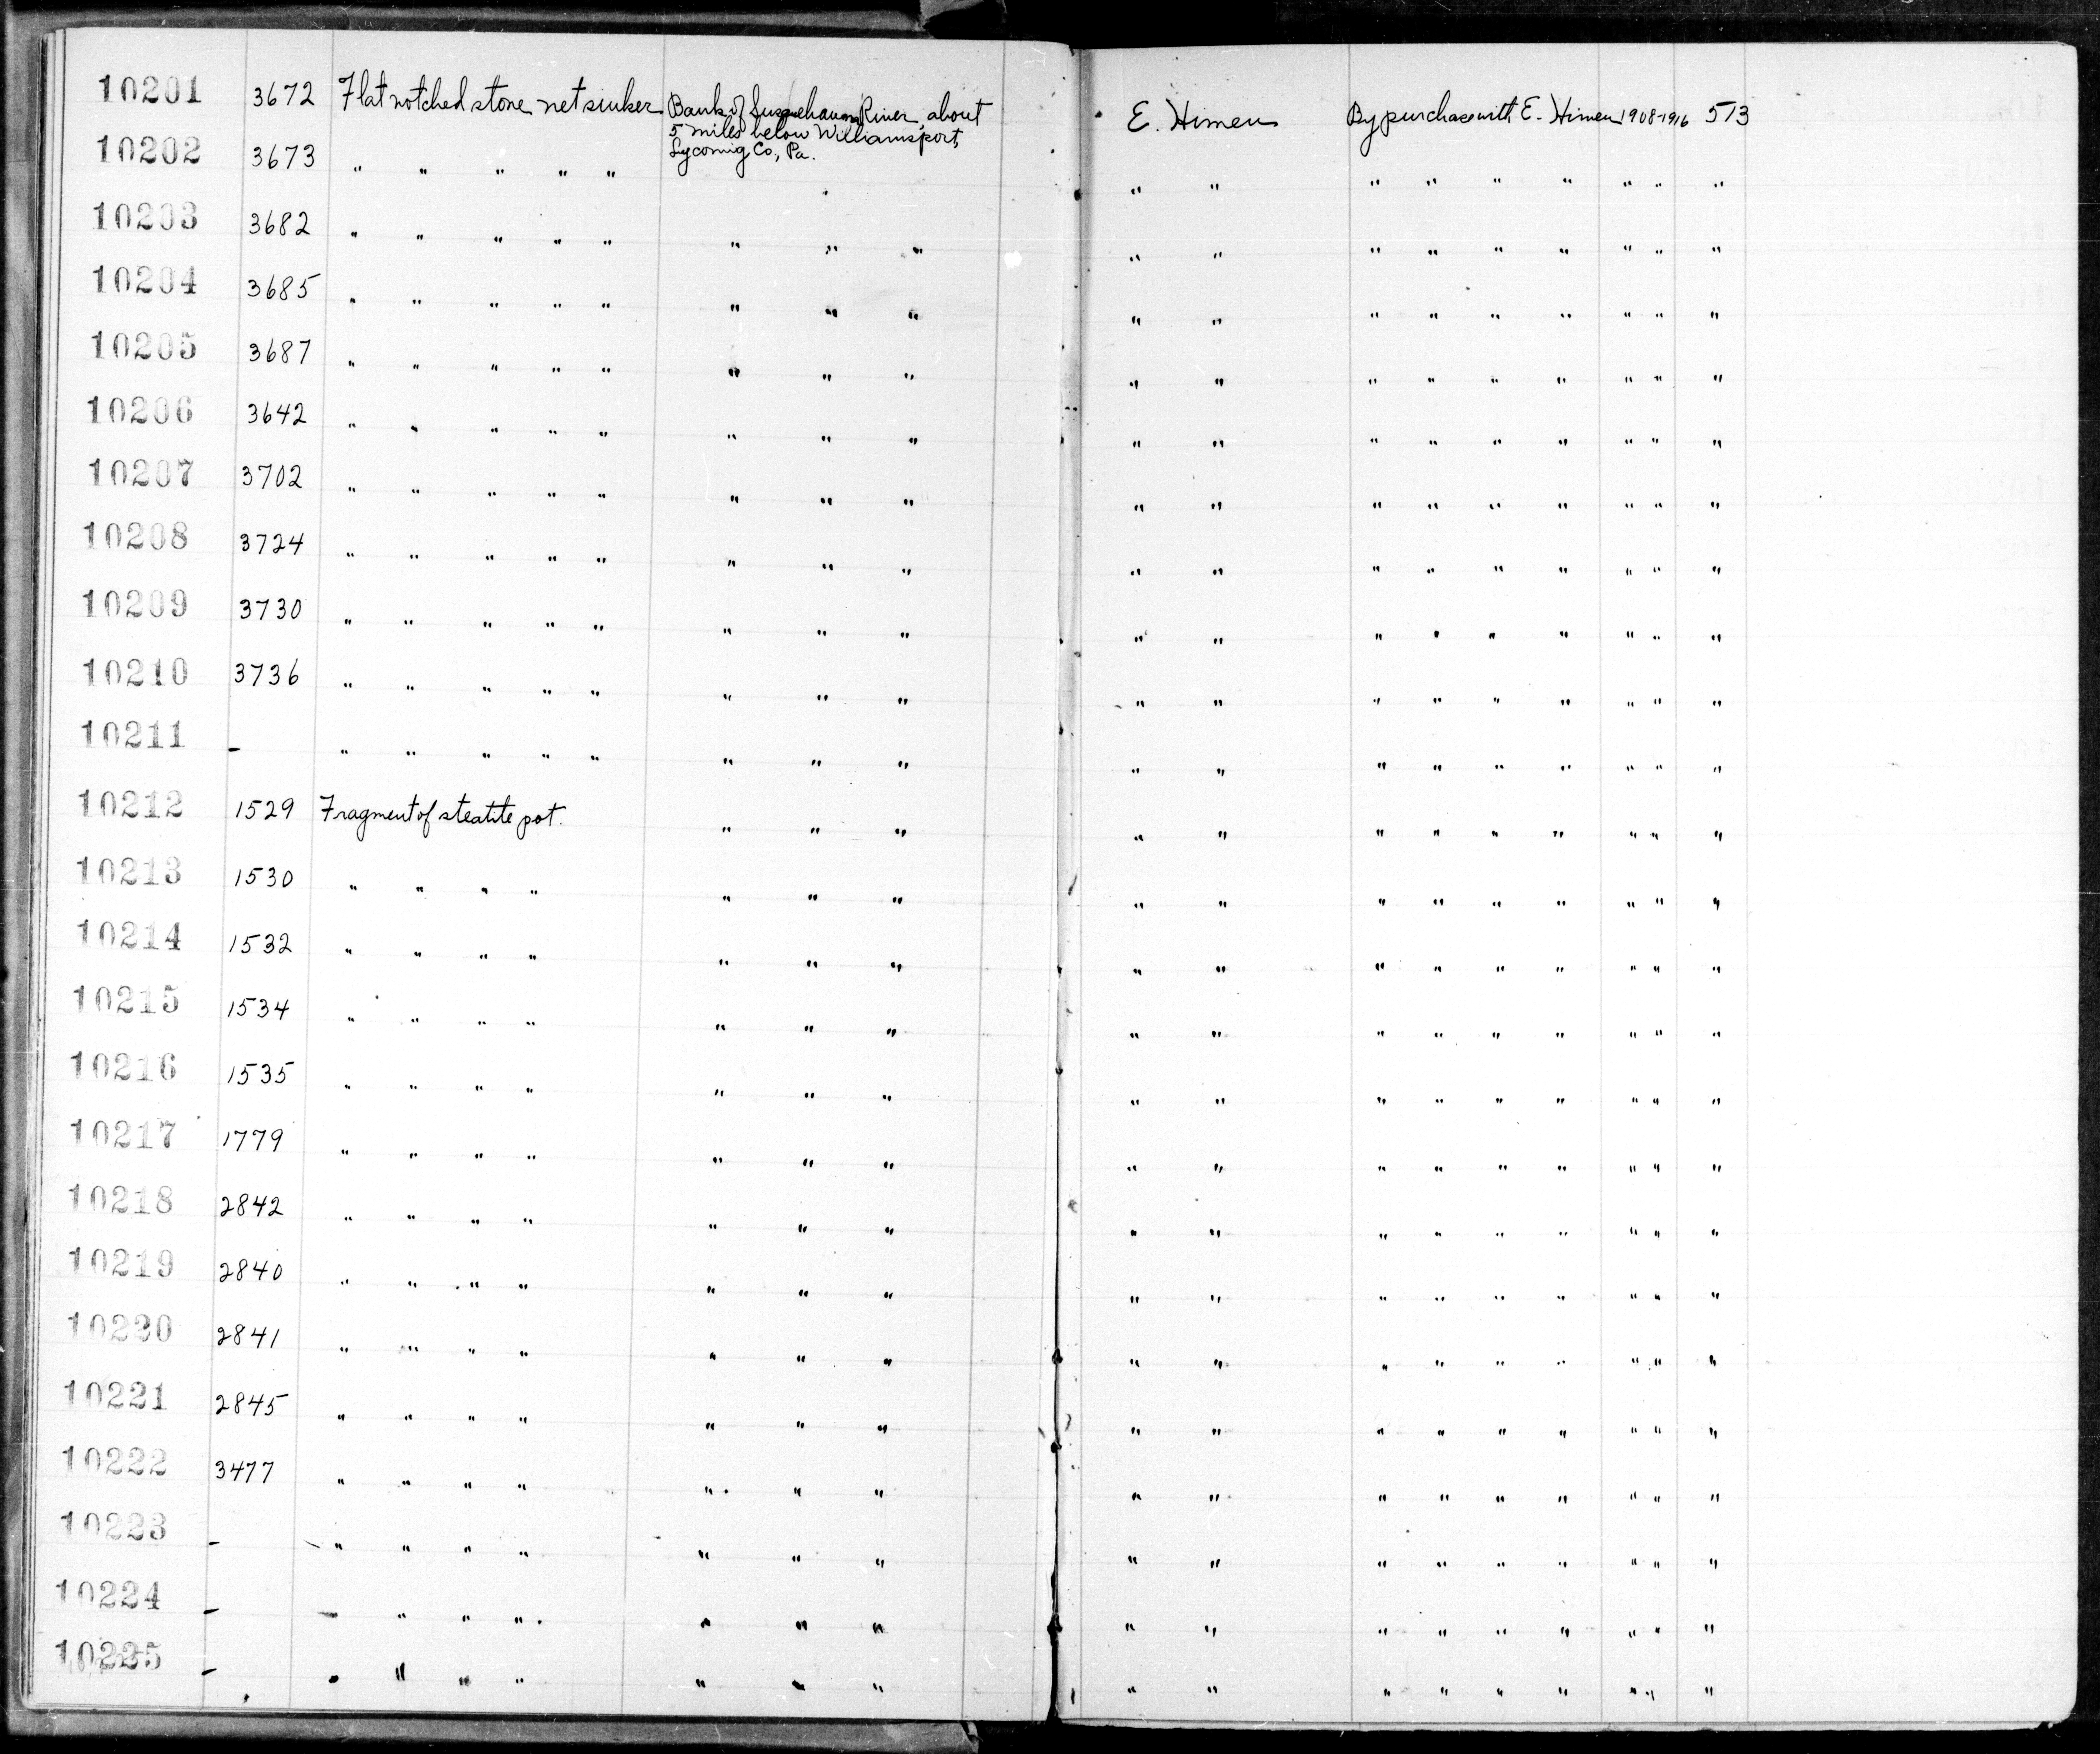 10201 3672 Flat notched stone net sinker Bank of Susquehanna River, about E. Himen By purchase with E. Himen 1908-1916 573
5 miles below Williamsport,
Lycomig Co., Pa.
10202 3673 " " " " " " " " " " " " " "
10203 3682 " " " " " " " " " " " " " " " " "
10204 3685 " " " " " " " " " " " " " " " " "
10205 3687 " " " " " " " " " " " " " " " " "
10206 3642 " " " " " " " " " " " " " " " " "
10207 3702 " " " " " " " " " " " " " " " " "
10208 3724 " " " " " " " " " " " " " " " " "
10209 3730 " " " " " " " " " " " " " " " " "
10210 3736 " " " " " " " " " " " " " " " " "
10211 - " " " " " " " " " " " " " " " " "
10212 1529 Fragment of steatite pot. " " " " " " " " " " " "
10213 1530 " " " " " " " " " " " " " " " "
10214 1532 " " " " " " " " " " " " " " " "
10215 1534 " " " " " " " " " " " " " " " "
10216 1535 " " " " " " " " " " " " " " " "
10217 1779 " " " " " " " " " " " " " " " "
10218 2842 " " " " " " " " " " " " " " " "
10219 2840 " " " " " " " " " " " " " " " "
10220 2841 " " " " " " " " " " " " " " " "
10221 2845 " " " " " " " " " " " " " " " "
10222 3477 " " " " " " " " " " " " " " " "
10223 - " " " " " " " " " " " " " " " "
10224 - " " " " " " " " " " " " " " " "
10225 - " " " " " " " " " " " " " " " "